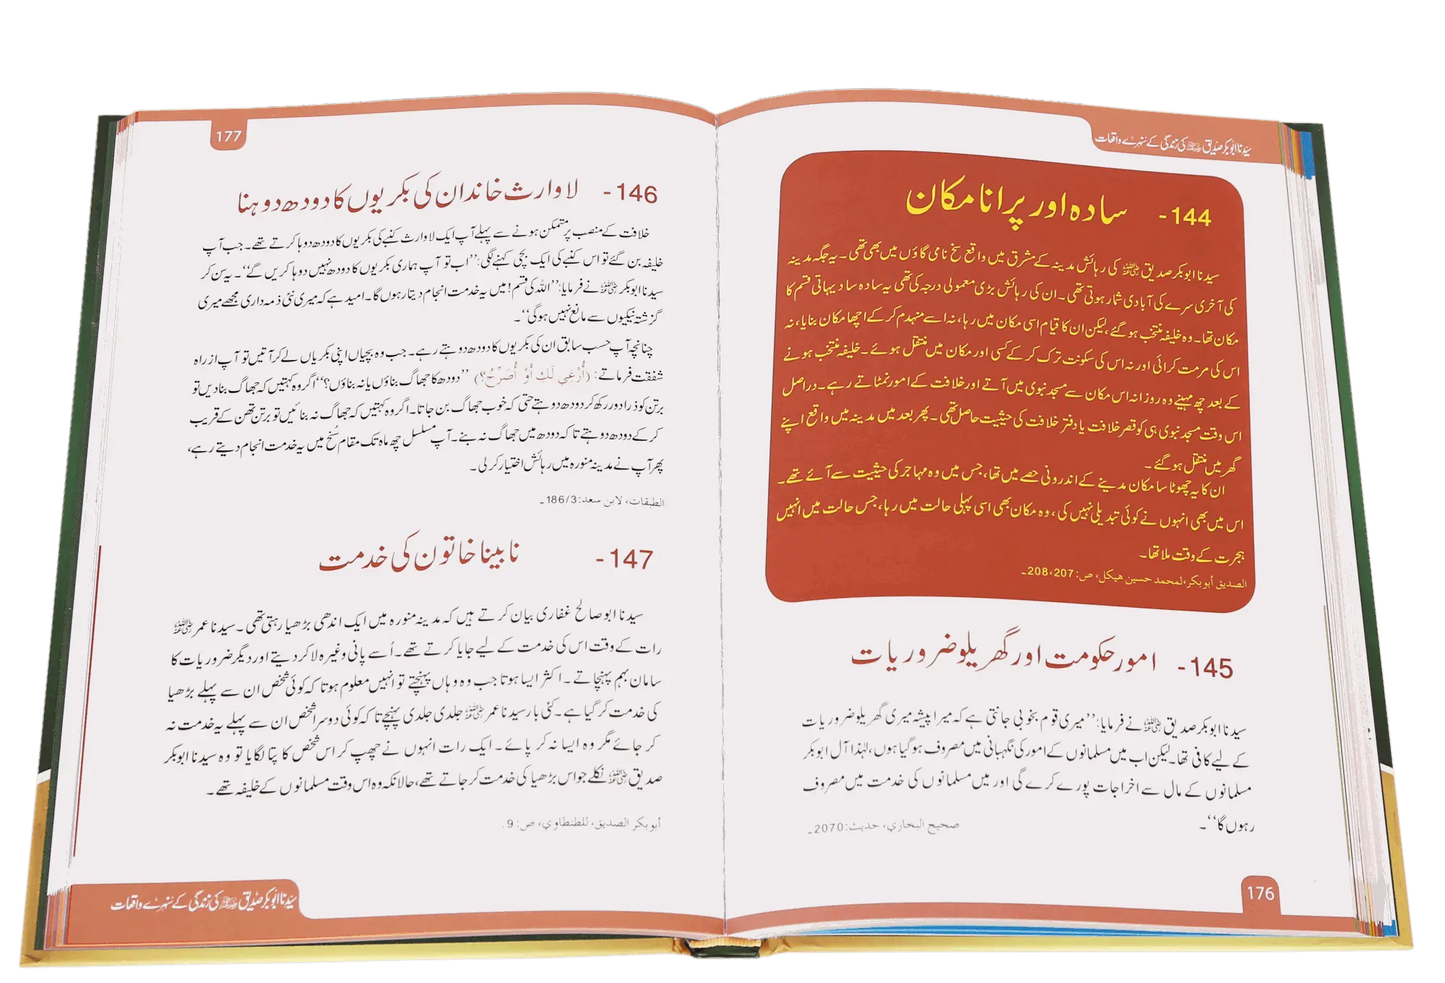 سیدنا ابوبکر صدیق ﷜ کی زندگی کے سنہرے واقعات
144- سادہ اور پرانا مکان
سیدنا ابوبکر صدیق ﷜ کی رہائش مدینہ کے مشرق میں واقع سخ نامی گاؤں میں بھی تھی۔ یہ جگہ مدینہ
کی آخری سرے کی آبادی شمار ہوتی تھی۔ ان کی رہائش بڑی معمولی درجہ کی تھی یہ سادہ سا دیہاتی قسم کا
مکان تھا۔ وہ خلیفہ منتخب ہو گئے، لیکن ان کا قیام اسی مکان میں رہا، نہ اسے منہدم کر کے اچھا مکان بنایا، نہ
اس کی مرمت کرائی اور نہ اس کی سکونت ترک کر کے کسی اور مکان میں منتقل ہوئے۔ خلیفہ منتخب ہونے
کے بعد چھ مہینے وہ روزانہ اس مکان سے مسجد نبوی میں آتے اور خلافت کے امور نمٹاتے رہے۔ دراصل
اس وقت مسجد نبوی ہی کو قصر خلافت یا دفتر خلافت کی حیثیت حاصل تھی۔ پھر بعد میں مدینہ میں واقع اپنے
گھر میں منتقل ہو گئے۔
ان کا یہ چھوٹا سا مکان مدینے کے اندرونی حصے میں تھا، جس میں وہ مہاجر کی حیثیت سے آئے تھے۔
اس میں بھی انہوں نے کوئی تبدیلی نہیں کی، وہ مکان بھی اسی پہلی حالت میں رہا، جس حالت میں انہیں
ہجرت کے وقت ملا تھا۔
الصديق أبوبكر، لمحمد حسين هيكل، ص: 207، 208۔
145- امور حکومت اور گھریلو ضروریات
سیدنا ابوبکر صدیق ﷜ نے فرمایا: ’’میری قوم بخوبی جانتی ہے کہ میرا پیشہ میری گھریلو ضروریات
کے لیے کافی تھا۔ لیکن اب میں مسلمانوں کے امور کی نگہبانی میں مصروف ہو گیا ہوں، لہٰذا آل ابوبکر
مسلمانوں کے مال سے اخراجات پورے کرے گی اور میں مسلمانوں کی خدمت میں مصروف
رہوں گا‘‘۔
صحيح البخاري، حديث: 2070۔
176
177
146- لاوارث خاندان کی بکریوں کا دودھ دوہنا
خلافت کے منصب پر متمکن ہونے سے پہلے آپ ایک لاوارث کنبے کی بکریوں کا دودھ دوہا کرتے تھے۔ جب آپ
خلیفہ بن گئے تو اس کنبے کی ایک بچی کہنے لگی: ’’اب تو آپ ہماری بکریوں کا دودھ نہیں دوہا کریں گے‘‘۔ یہ سن کر
سیدنا ابوبکر ﷜ نے فرمایا: ’’اللہ کی قسم! میں یہ خدمت انجام دیتا رہوں گا۔ امید ہے کہ میری نئی ذمہ داری مجھے میری
گزشتہ نیکیوں سے مانع نہیں ہوگی‘‘۔
چنانچہ آپ حسب سابق ان کی بکریوں کا دودھ دوہتے رہے۔ جب وہ بچیاں اپنی بکریاں لے کر آتیں تو آپ از راہ
شفقت فرماتے: (أُرْغِي لَكِ أَوْ أُصَرِّحُ؟) ’’دودھ کا جھاگ بناؤں یا نہ بناؤں؟‘‘ اگر وہ کہتیں کہ جھاگ بنا دیں تو
برتن کو ذرا دور رکھ کر دودھ دوہتے حتی کہ خوب جھاگ بن جاتا۔ اگر وہ کہتیں کہ جھاگ نہ بنائیں تو برتن تھن کے قریب
کر کے دودھ دوہتے تا کہ دودھ میں جھاگ نہ بنے۔ آپ مسلسل چھ ماہ تک مقام سُخ میں یہ خدمت انجام دیتے رہے،
پھر آپ نے مدینہ منورہ میں رہائش اختیار کر لی۔
الطبقات، لابن سعد: 186/3۔
147- نابینا خاتون کی خدمت
سیدنا ابو صالح غفاری بیان کرتے ہیں کہ مدینہ منورہ میں ایک اندھی بڑھیا رہتی تھی۔ سیدنا عمر ﷜
رات کے وقت اس کی خدمت کے لیے جایا کرتے تھے۔ اُسے پانی وغیرہ لا کر دیتے اور دیگر ضروریات کا
سامان بہم پہنچاتے۔ اکثر ایسا ہوتا جب وہ وہاں پہنچتے تو انہیں معلوم ہوتا کہ کوئی شخص ان سے پہلے بڑھیا
کی خدمت کر گیا ہے۔ کئی بار سیدنا عمر ﷜ جلدی جلدی پہنچے تا کہ کوئی دوسرا شخص ان سے پہلے یہ خدمت نہ
کر جائے مگر وہ ایسا نہ کر پائے۔ ایک رات انہوں نے چھپ کر اس شخص کا پتا لگایا تو وہ سیدنا ابوبکر
صدیق ﷜ نکلے جو اس بڑھیا کی خدمت کر جاتے تھے، حالانکہ وہ اس وقت مسلمانوں کے خلیفہ تھے۔
أبوبكر الصديق، للطنطاوي، ص: 9.
سیدنا ابوبکر صدیق ﷜ کی زندگی کے سنہرے واقعات